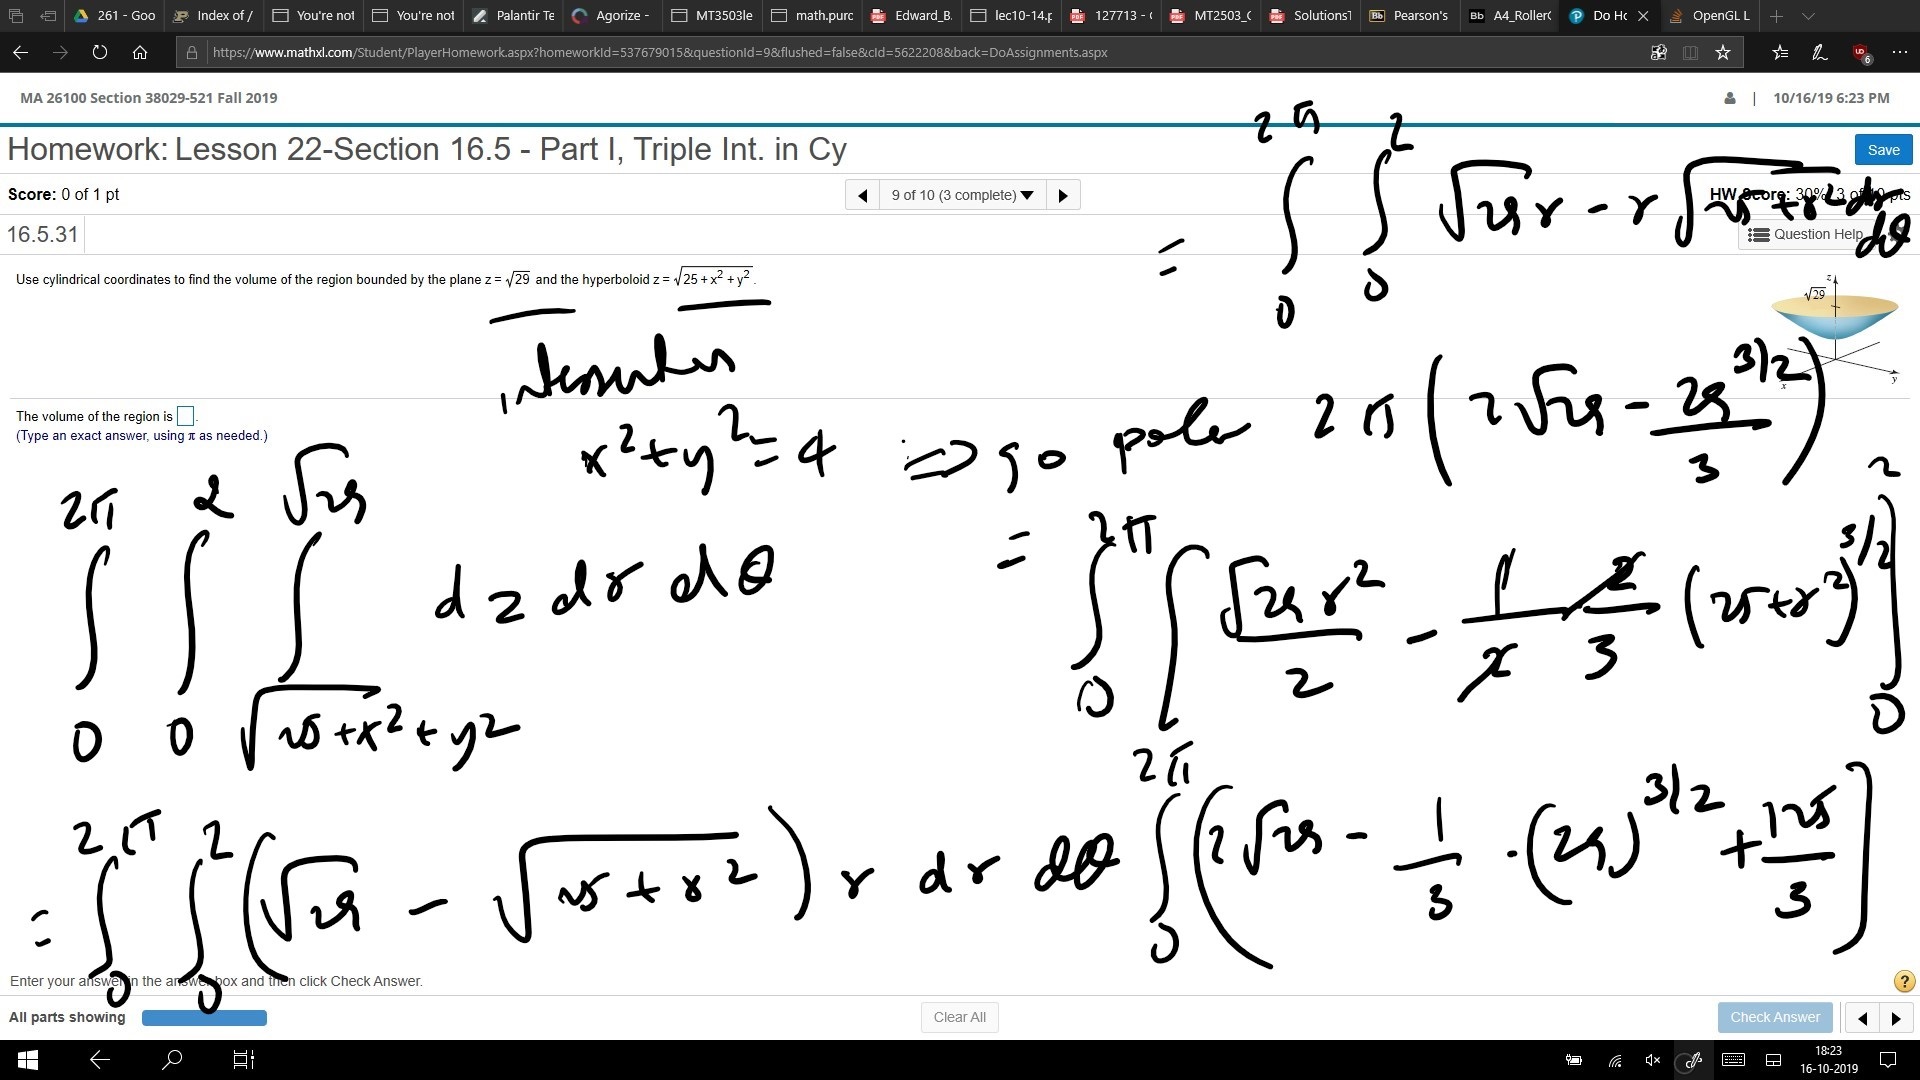 261 - Goo
Index of /
You're not
You're not
Palantir Te
Agorize -
MT3503le
math.purc
Edward_B.
lec10-14.p
127713 - (
MT2503_C
SolutionsT
Pearson's
A4_RollerC
Do Hc
OpenGL L
https://www.mathxl.com/Student/PlayerHomework.aspx?homeworkId=537679015&questionId=9&flushed=false&cId=5622208&back=DoAssignments.aspx
MA 26100 Section 38029-521 Fall 2019
| 10/16/19 6:23 PM
Homework: Lesson 22-Section 16.5 - Part I, Triple Int. in Cy
Save
Score: 0 of 1 pt
9 of 10 (3 complete)
HW Score: 30%, 3 of 10 pts
16.5.31
Question Help
= ∫₀^2π ∫₀^2 √29 r - r√25+r² dr dθ
Use cylindrical coordinates to find the volume of the region bounded by the plane z = √29 and the hyperboloid z = √25 + x² + y².
z
√29
x
y
x² + y² = 4 ⇒ go polar
2π (2√29 - 29^3/2 / 3)
The volume of the region is
(Type an exact answer, using π as needed.)
∫₀^2π ∫₀^2 ∫_√25+x²+y²^√29 dz dr dθ
= ∫₀^2π [√29 r²/2 - 1/2 · 2/3 (25+r²)^3/2]₀^2
= ∫₀^2π ∫₀^2 (√29 - √25+r²) r dr dθ
∫₀^2π (2√29 - 1/3 · (29)^3/2 + 125/3]
Enter your answer in the answer box and then click Check Answer.
?
All parts showing
Clear All
Check Answer
18:23
16-10-2019